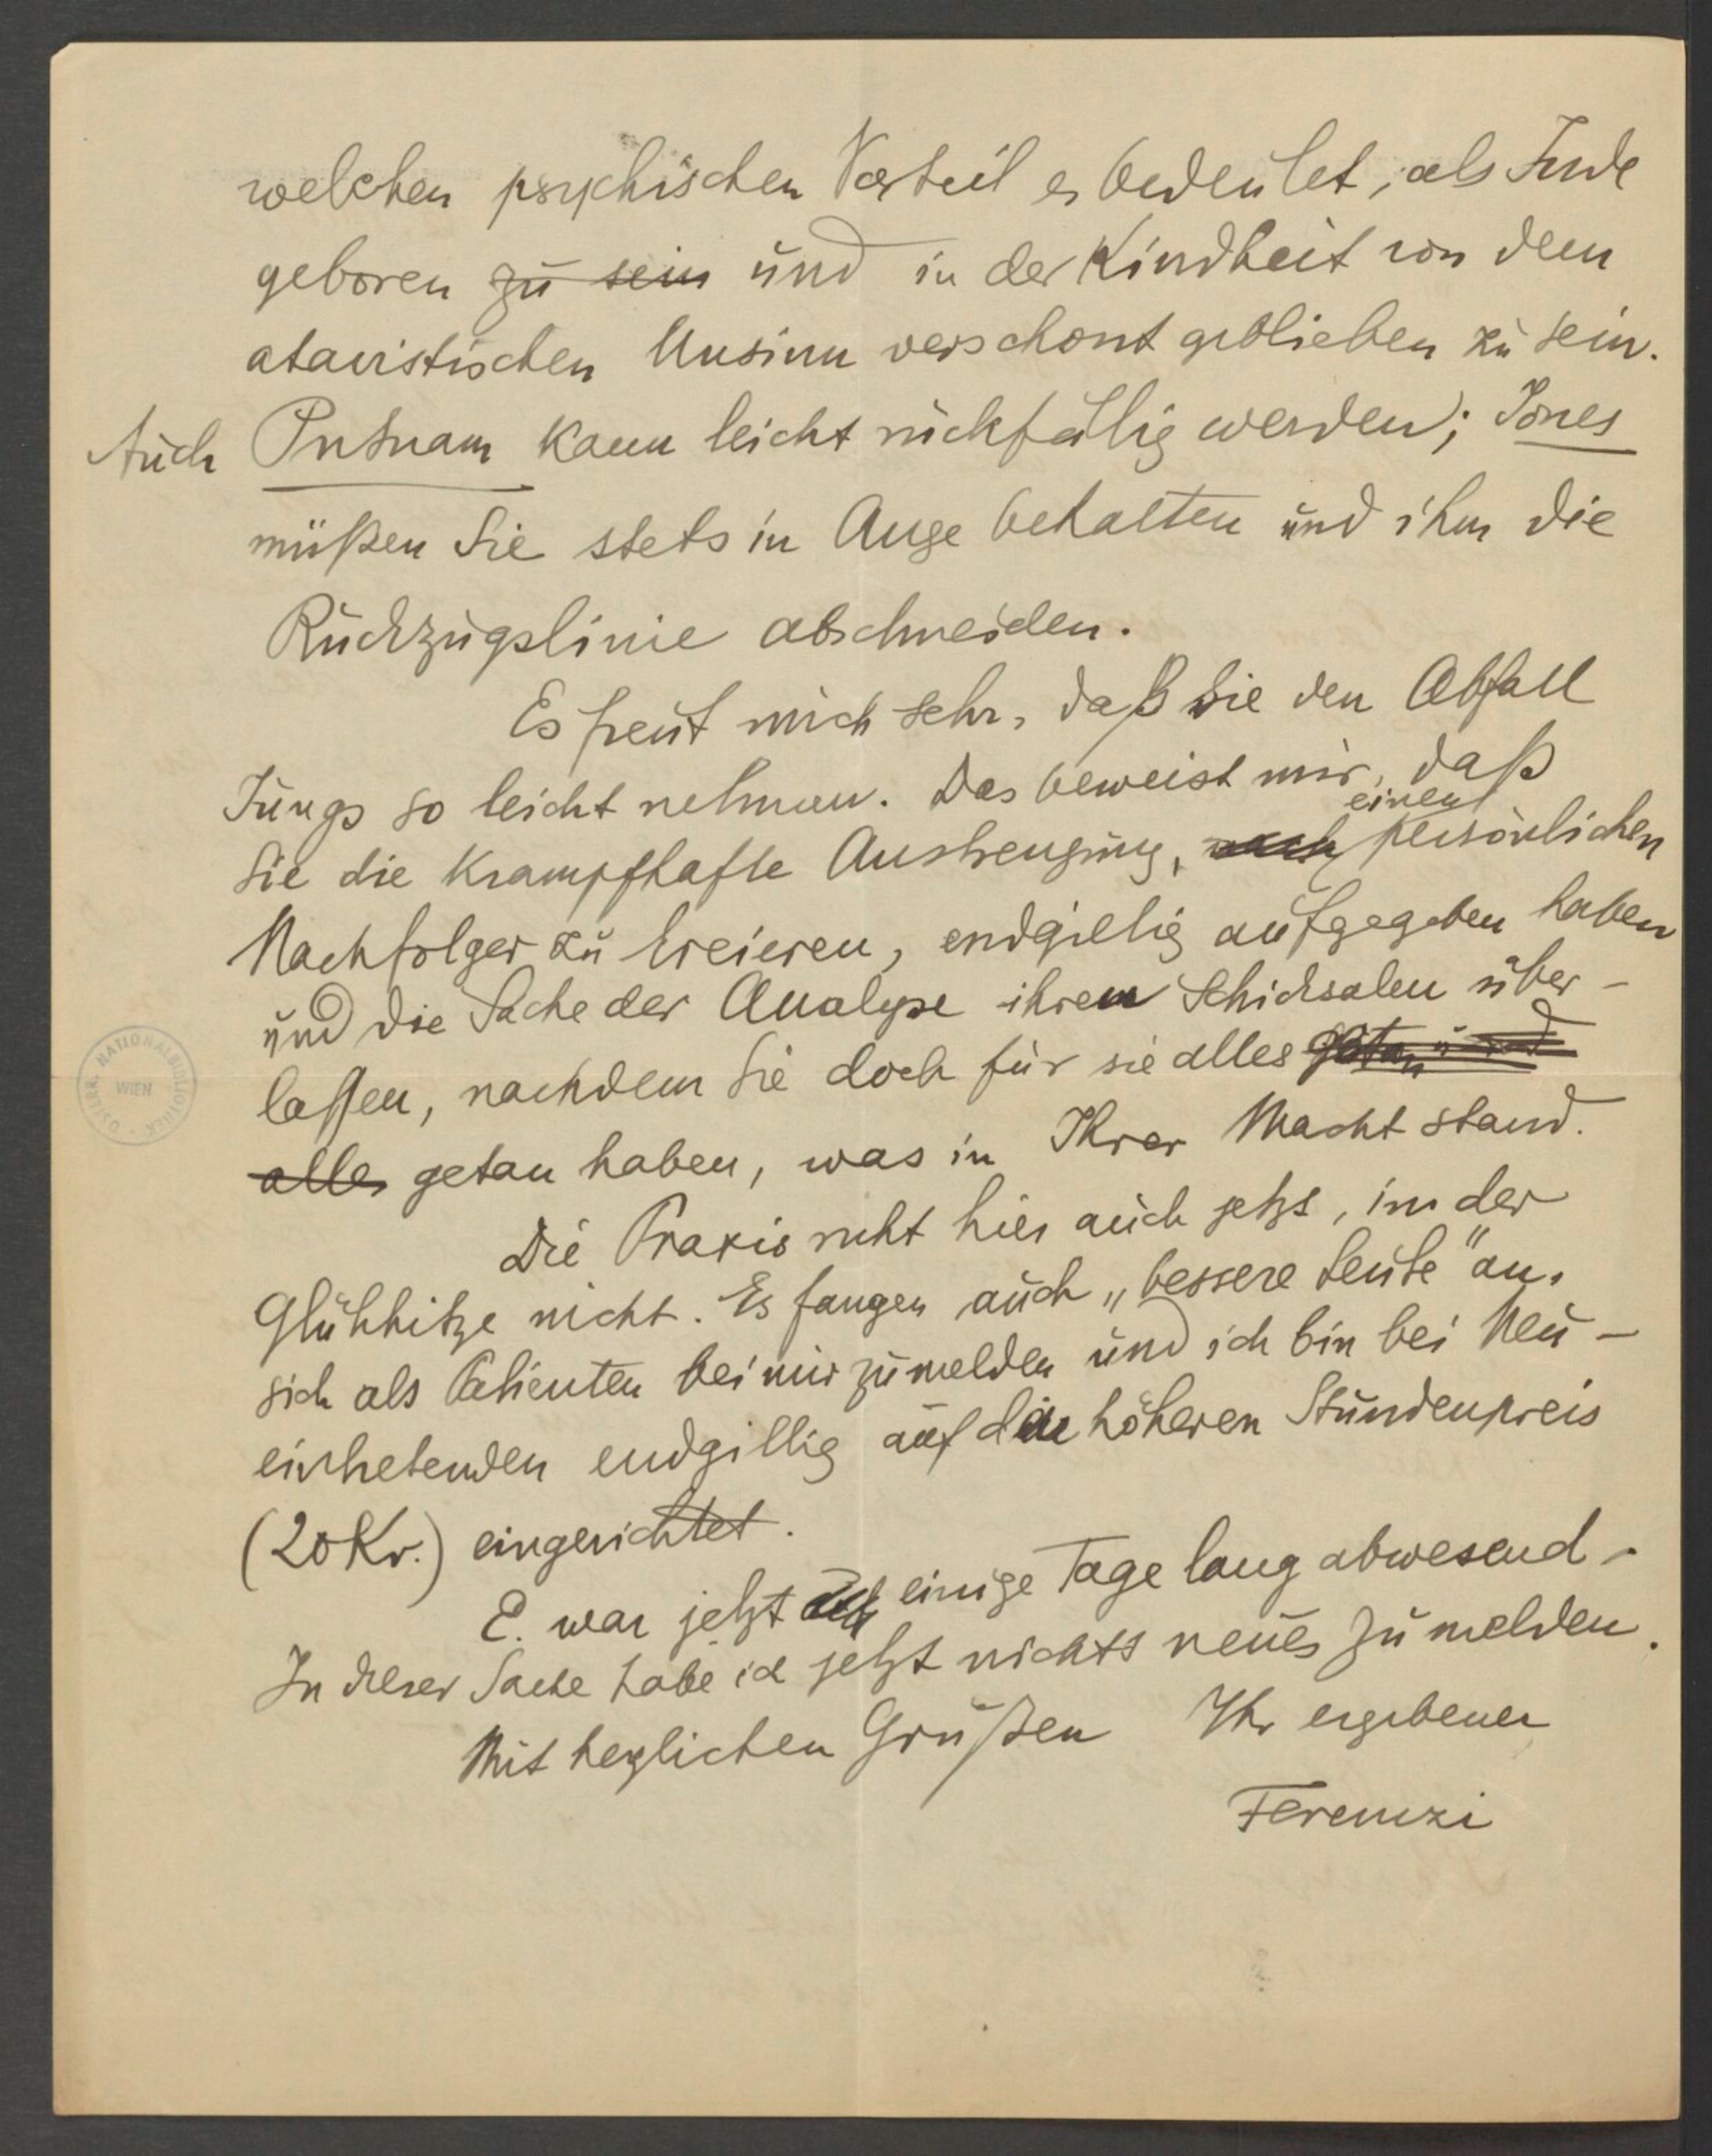 welchen psychischen Vorteil es bedeutet, als Jude
geboren zu sein und in der Kindheit von dem
atavistischen Unsinn verschont geblieben zu sein.
Auch Putnam kann leicht rückfällig werden; Jones
müßen Sie stets in Auge behalten und ihm die
Rückzugslinie abschneiden.
Es freut mich sehr, daß Sie den Abfall
Jungs so leicht nehmen. Das beweist mir, daß
Sie die krampfhafte Anstrengung, einen persönlichen
Nachfolger zu kreieren, endgiltig aufgegeben haben
und die Sache der Analyse ihren Schicksalen über-
laßen, nachdem Sie doch für sie alles getan und
alles getan haben, was in Ihrer Macht stand.
Die Praxis ruht hier auch jetzt, in der
Glühhitze nicht. Es fangen auch „bessere Leute" an,
sich als Patienten bei mir zu melden und ich bin bei Neu-
eintretenden endgiltig auf den höheren Stundenpreis
(20 Kr.) eingerichtet.
E. war jetzt einige Tage lang abwesend.
In dieser Sache habe ich jetzt nichts neues zu melden.
Mit herzlichen Grüßen Ihr ergebener
Ferenczi
ÖSTERR. NATIONALBIBLIOTHEK
WIEN